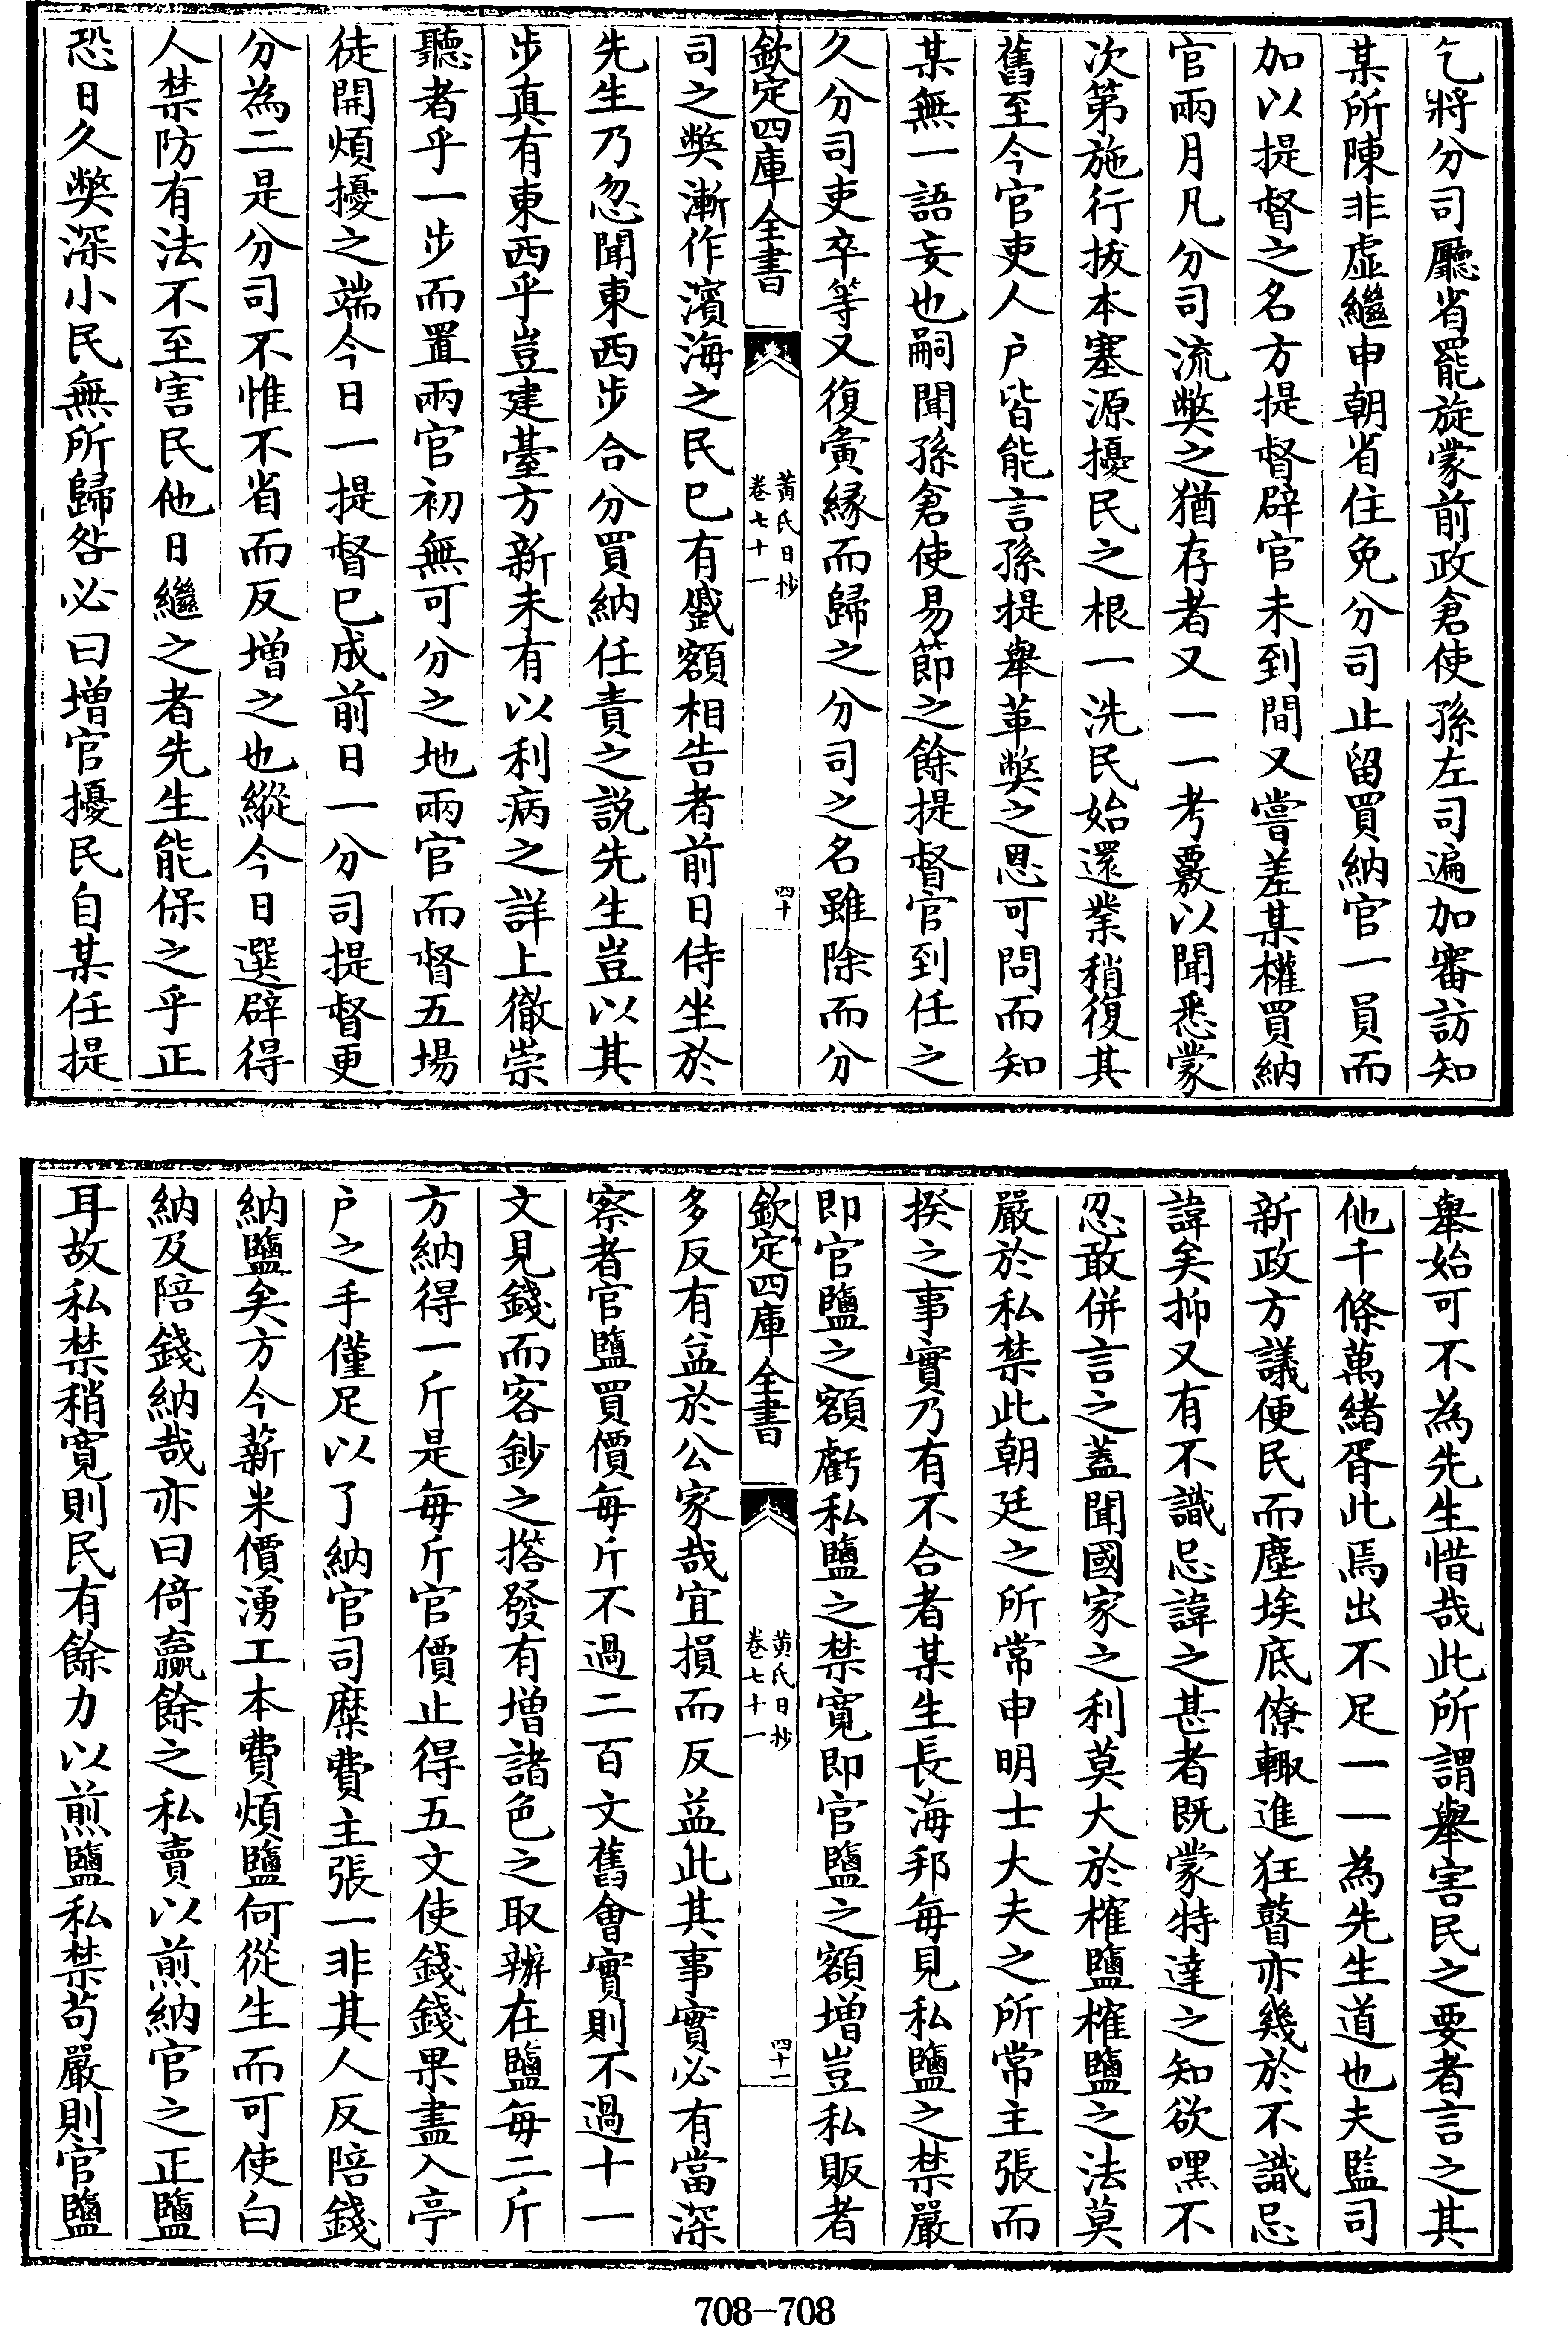 乞將分司廳省罷旋蒙前政倉使孫左司遍加審訪知
某所陳非虚繼申朝省住免分司止留買納官一員而
加以提督之名方提督辟官未到間又嘗差某權買納
官兩月凡分司流弊之猶存者又一一考覈以聞悉蒙
次第施行拔本塞源擾民之根一洗民始還業稍復其
舊至今官吏人户皆能言孫提舉革弊之恩可問而知
某無一語妄也嗣聞孫倉使易節之餘提督官到任之
久分司吏卒等又復夤縁而歸之分司之名雖除而分
欽定四庫全書
黄氏日抄
卷七十一
四十
司之弊漸作濱海之民已有蹙額相告者前日侍坐於
先生乃忽聞東西步合分買納任責之説先生豈以其
步真有東西乎豈建臺方新未有以利病之詳上徹崇
聽者乎一步而置兩官初無可分之地兩官而督五場
徒開煩擾之端今日一提督已成前日一分司提督更
分為二是分司不惟不省而反增之也縱今日選辟得
人禁防有法不至害民他日繼之者先生能保之乎正
恐日久弊深小民無所歸咎必曰增官擾民自某任提
舉始可不為先生惜哉此所謂舉害民之要者言之其
他千條萬緒胥此焉出不足一一為先生道也夫監司
新政方議便民而塵埃底僚輙進狂瞽亦幾於不識忌
諱矣抑又有不識忌諱之甚者既蒙特達之知欲嘿不
忍敢併言之蓋聞國家之利莫大於榷鹽榷鹽之法莫
嚴於私禁此朝廷之所常申明士大夫之所常主張而
揆之事實乃有不合者某生長海邦每見私鹽之禁嚴
即官鹽之額虧私鹽之禁寛即官鹽之額增豈私販者
欽定四庫全書
黄氏日抄
卷七十一
四十一
多反有益於公家哉宜損而反益此其事實必有當深
察者官鹽買價每斤不過二百文舊會實則不過十一
文見錢而客鈔之撘發有增諸色之取辦在鹽每二斤
方納得一斤是每斤官價止得五文使錢錢果盡入亭
户之手僅足以了納官司糜費主張一非其人反陪錢
納鹽矣方今薪米價湧工本費煩鹽何從生而可使白
納及陪錢納哉亦曰倚贏餘之私賣以煎納官之正鹽
耳故私禁稍寛則民有餘力以煎鹽私禁苟嚴則官鹽
708-708